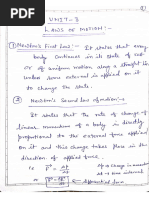 UNIT-3
LAWS OF MOTION:-
① Newton's First Law:- It states that every
body continues in its state of rest
or of uniform motion along a straight line
unless some external is applied on it
to change the state.
② Newton's Second law of motion:-
It states that the rate of change of
linear momentum of a body is directly
proportional to the force applied on it
and this change takes place in the
direction of applied force.